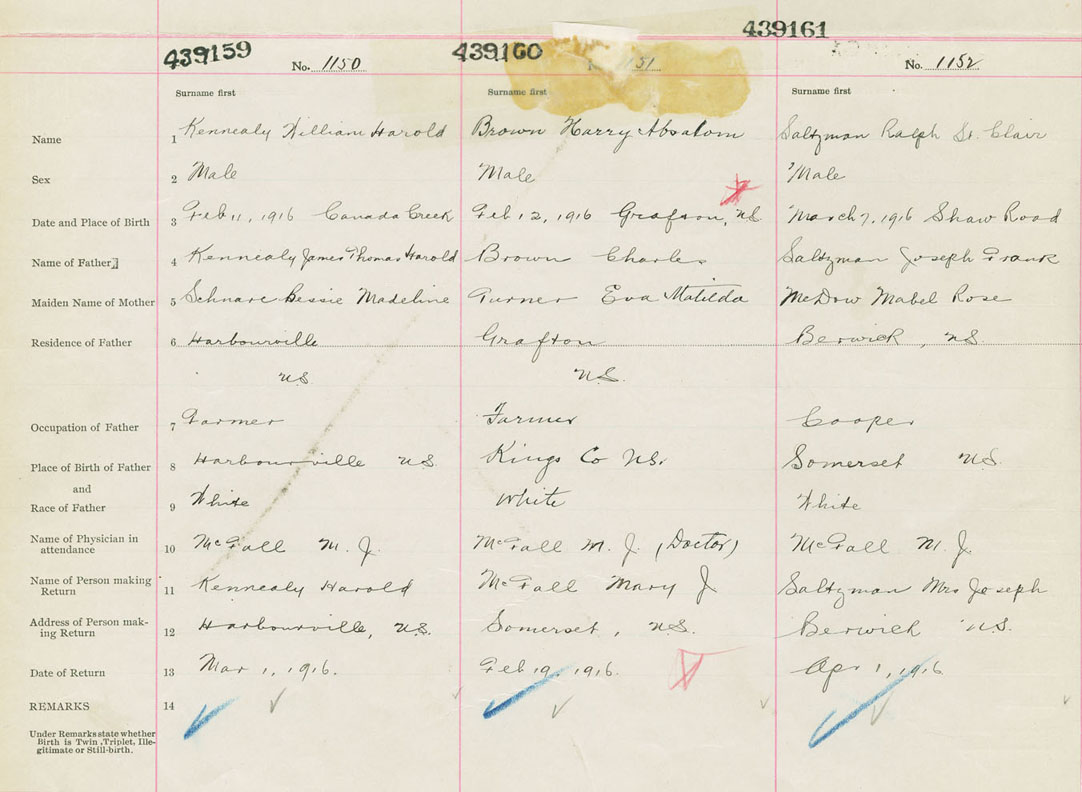 439159 439160 439161
No. 1150 1151 No. 1152
Surname first Surname first Surname first
Name 1 Kennealy William Harold Brown Harry Absalom Saltzman Ralph St. Clair
Sex 2 Male Male Male
Date and Place of Birth 3 Feb 11, 1916 Canada Creek Feb 12, 1916 Grafton, N.S. March 7, 1916 Shaw Road
Name of Father 4 Kennealy James Thomas Harold Brown Charles Saltzman Joseph Frank
Maiden Name of Mother 5 Schnare Bessie Madeline Turner Eva Matilda McDow Mabel Rose
Residence of Father 6 Harbourville Grafton Berwick, N.S.
N.S. N.S.
Occupation of Father 7 Farmer Farmer Cooper
Place of Birth of Father 8 Harbourville N.S. Kings Co N.S. Somerset N.S.
and
Race of Father 9 White White White
Name of Physician in
attendance 10 McFall M. J. McFall M. J. (Doctor) McFall M. J.
Name of Person making
Return 11 Kennealy Harold McFall Mary J Saltzman Mrs Joseph
Address of Person mak-
ing Return 12 Harbourville, N.S. Somerset, N.S. Berwick N.S.
Date of Return 13 Mar 1, 1916. Feb 19, 1916. Apr 1, 1916
REMARKS 14
Under Remarks state whether
Birth is Twin, Triplet, Ille-
gitimate or Still-birth.